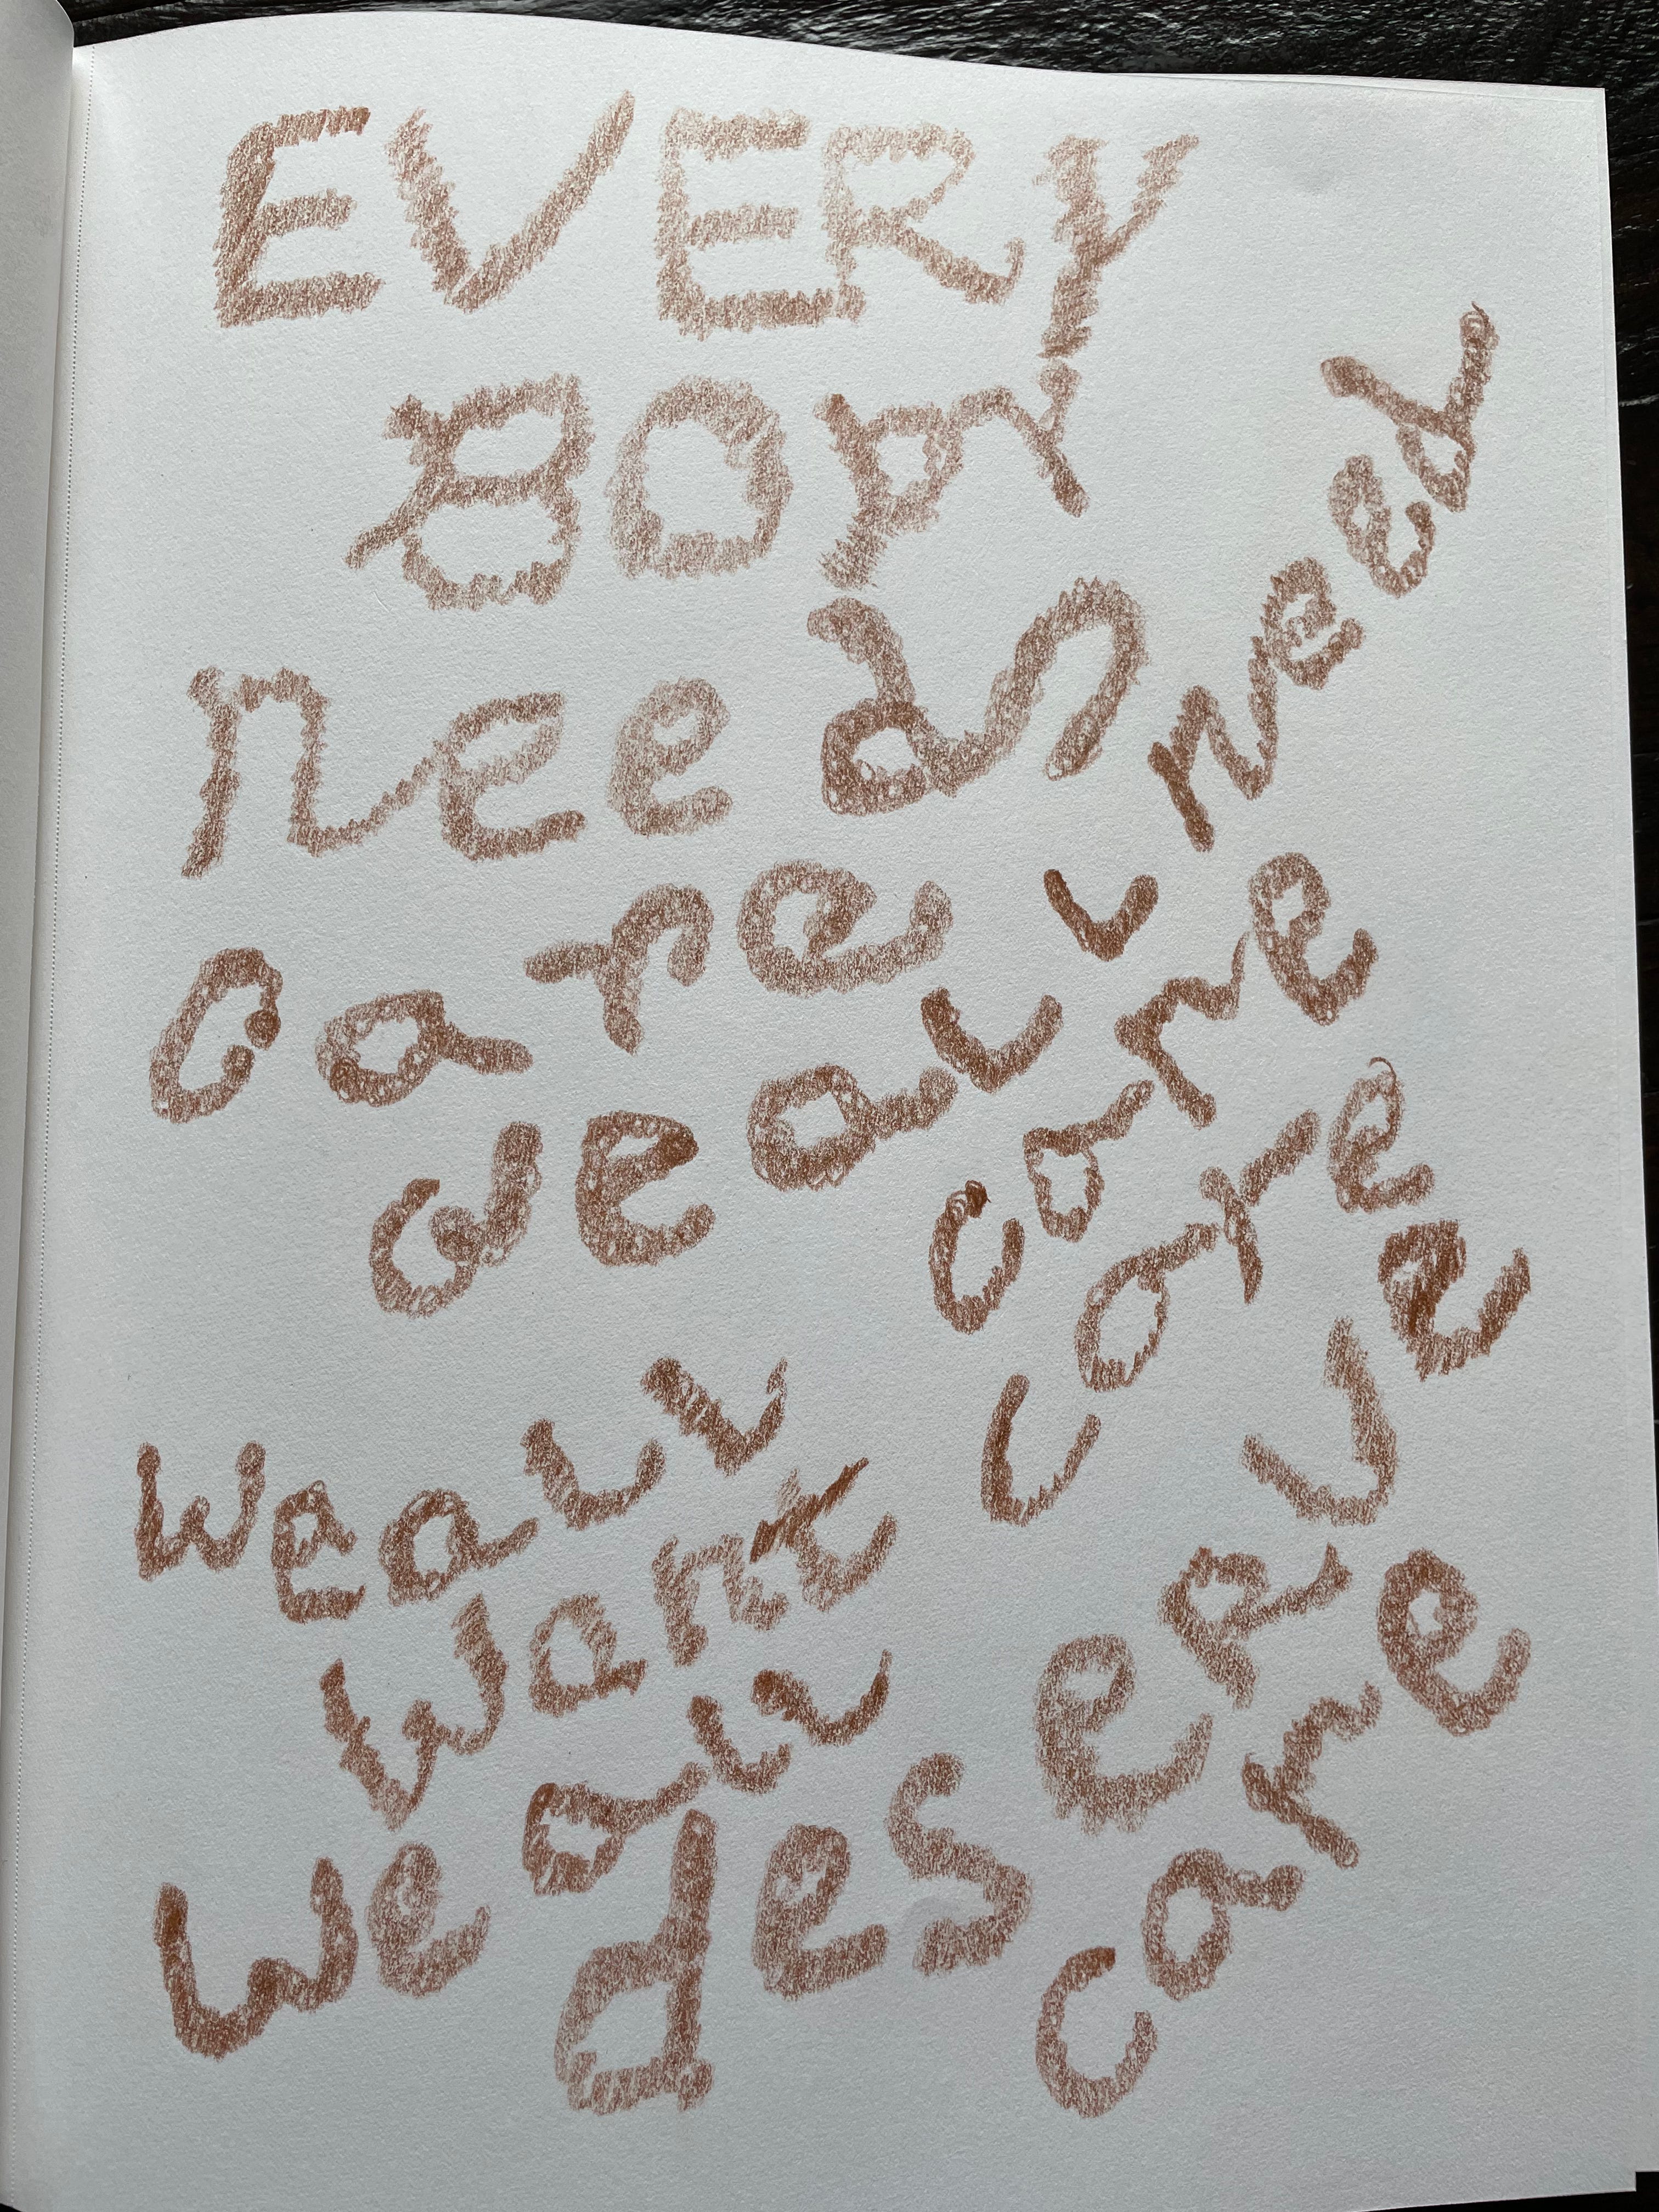 EVERY
BODY
needs
care
we all need
care
we all want care
we all
deserve
care